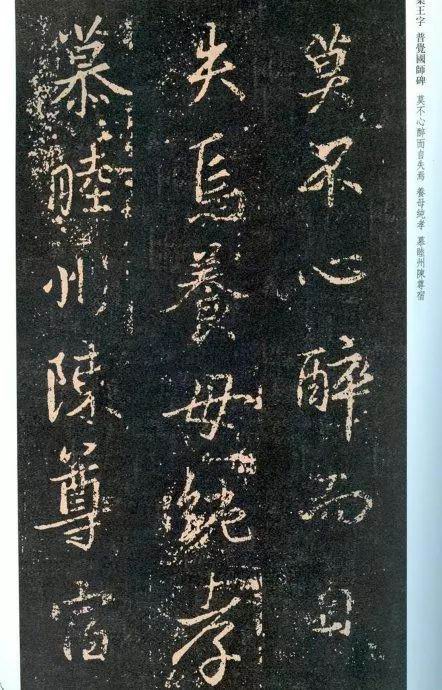 集王字 普覺國師碑 莫不心醉而自失焉 養母純孝 慕睦州陳尊宿
莫不心醉而自
失焉養母純孝
慕睦州陳尊宿